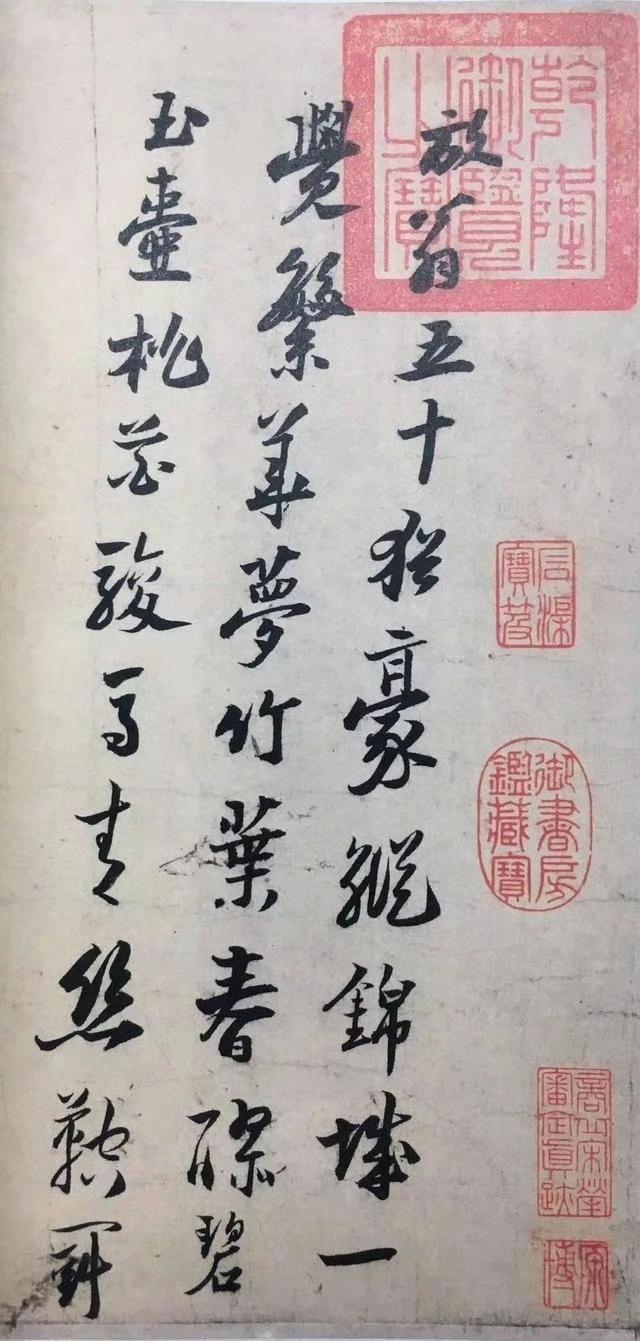 乾隆
御覽
之寶
放翁五十猶豪縱錦城一
覺繁華夢竹葉春醪碧
玉壺桃花駿馬青絲鞚鬥
石渠
寶笈
御書房
鑑藏寶
商丘宋犖
審定真跡